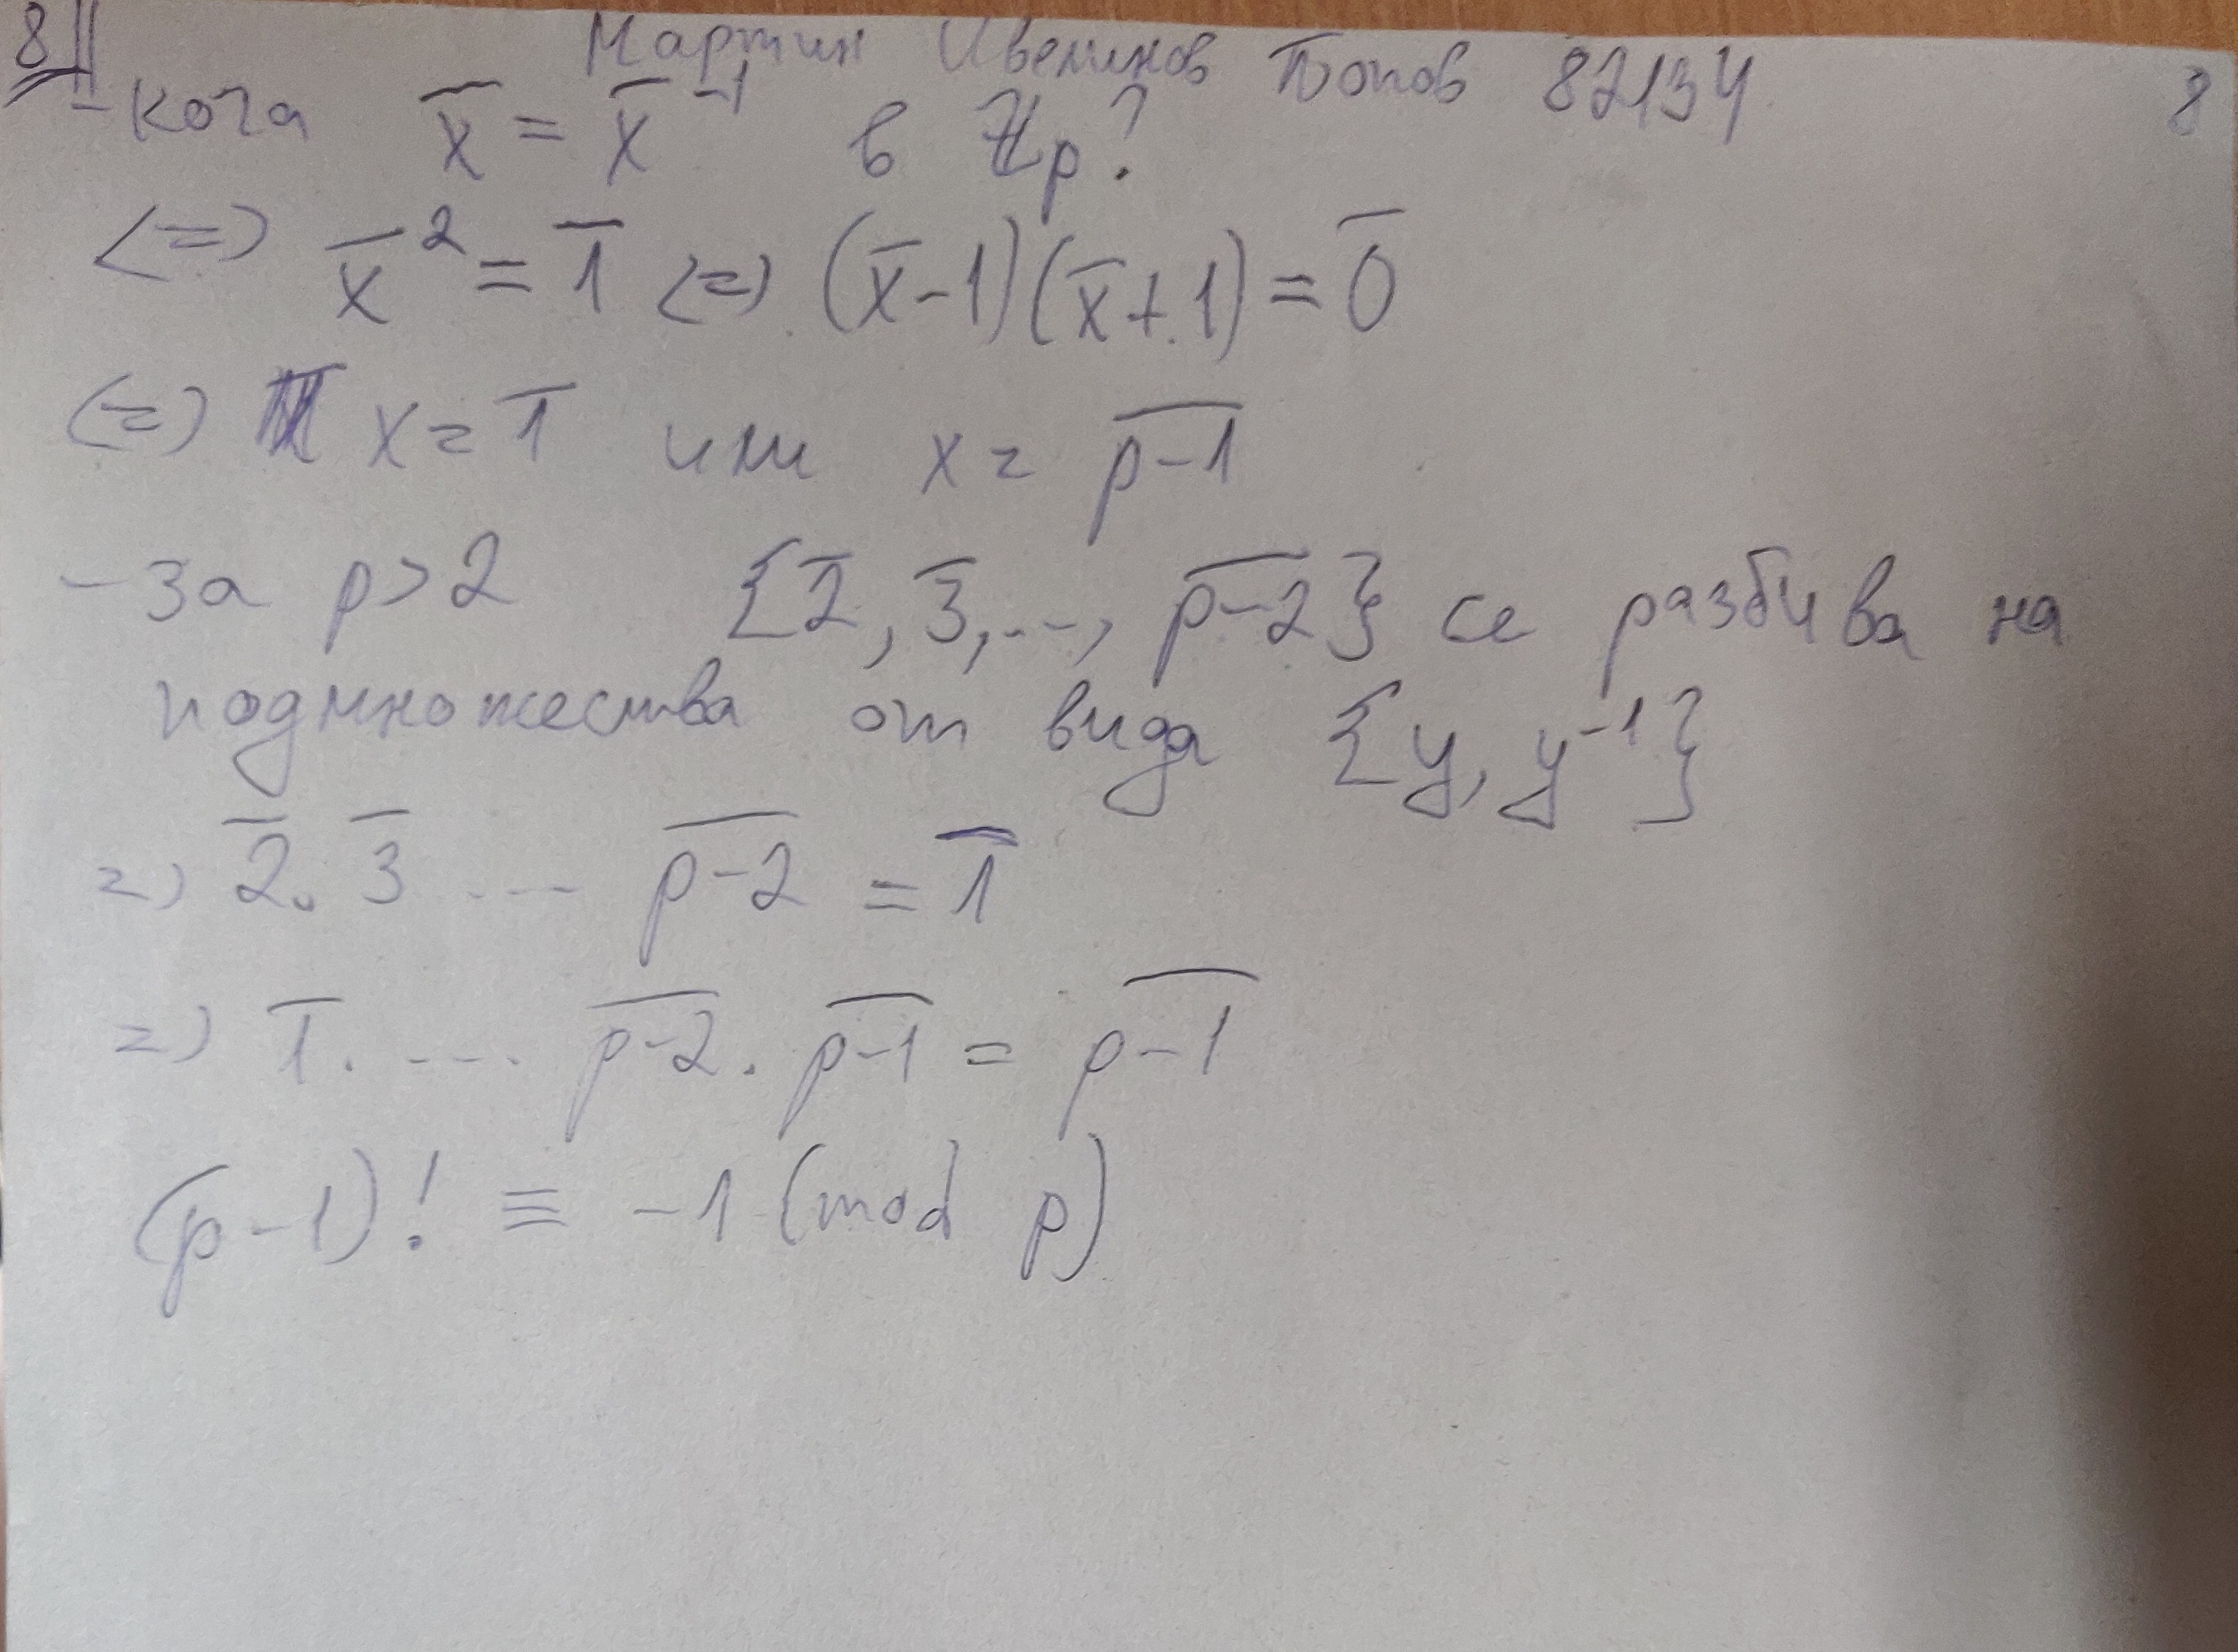 8|| Мартин Ивелинов Попов 82134 8
- кога x̅ = x̅⁻¹ в ℤp?
<=> x̅² = 1̅ <=> (x̅-1)(x̅+1) = 0̅
<=> x = 1̅ или x = p-1̅
- За p>2 {2̅, 3̅, ..., p-2̅} се разбива на
подмножества от вида {y, y⁻¹}
=> 2̅. 3̅ ... p-2̅ = 1̅
=> 1̅. .... p-2̅. p-1̅ = p-1̅
(p-1)! ≡ -1 (mod p)